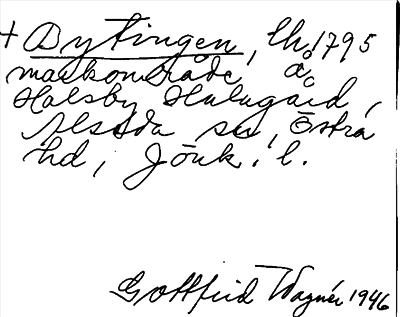 + Dytingen, lh 1795
markområde å
Holsby Hulugård,
Alseda sn, Östra
hd, Jönk. l.
Gottfrid Wagnér 1946